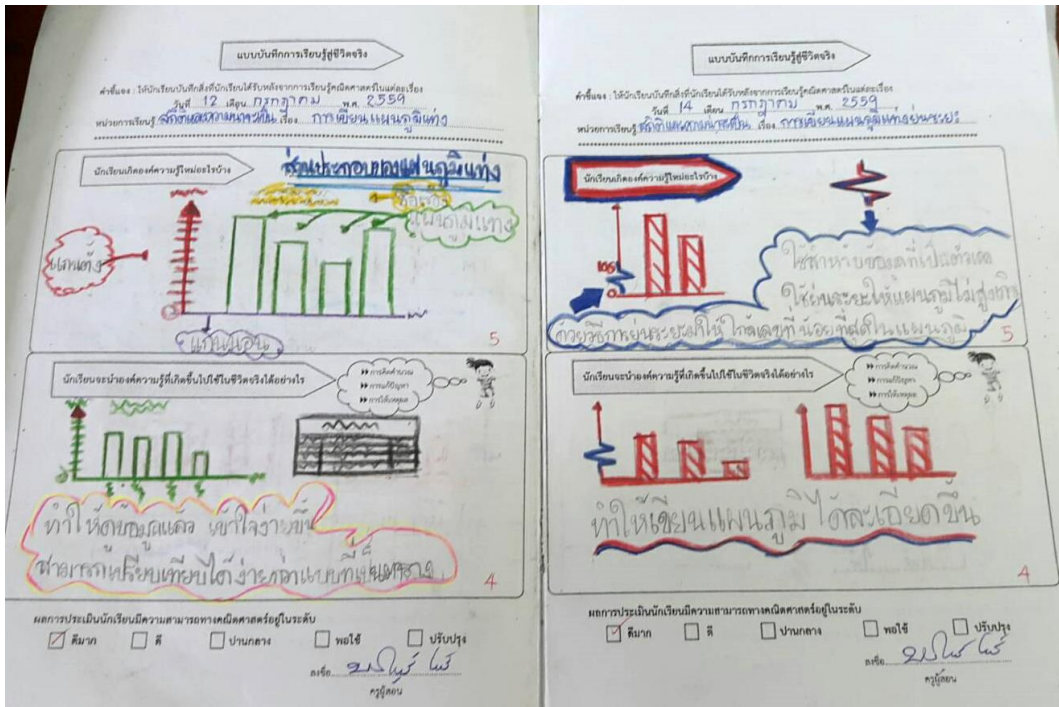 แบบบันทึกการเรียนรู้สู่ชีวิตจริง
คำชี้แจง : ให้นักเรียนบันทึกสิ่งที่นักเรียนได้รับหลังจากการเรียนรู้คณิตศาสตร์ในแต่ละเรื่อง
วันที่ 12 เดือน กรกฎาคม พ.ศ. 2559
หน่วยการเรียนรู้ สถิติและความน่าจะเป็น เรื่อง การเขียนแผนภูมิแท่ง
นักเรียนเกิดองค์ความรู้ใหม่อะไรบ้าง
ส่วนประกอบของแผนภูมิแท่ง
ชื่อเรื่อง
แผนภูมิแท่ง
แกนตั้ง
0
แกนนอน
5
นักเรียนจะนำองค์ความรู้ที่เกิดขึ้นไปใช้ในชีวิตจริงได้อย่างไร
การคิดคำนวณ
การแก้ปัญหา
การให้เหตุผล
0
ทำให้ดูข้อมูลแล้ว เข้าใจง่ายขึ้น
สามารถเปรียบเทียบได้ง่ายกว่าแบบที่เป็นตาราง
4
ผลการประเมินนักเรียนมีความสามารถทางคณิตศาสตร์อยู่ในระดับ
ดีมาก ดี ปานกลาง พอใช้ ปรับปรุง
ลงชื่อ
ครูผู้สอน
แบบบันทึกการเรียนรู้สู่ชีวิตจริง
คำชี้แจง : ให้นักเรียนบันทึกสิ่งที่นักเรียนได้รับหลังจากการเรียนรู้คณิตศาสตร์ในแต่ละเรื่อง
วันที่ 14 เดือน กรกฎาคม พ.ศ. 2559
หน่วยการเรียนรู้ สถิติและความน่าจะเป็น เรื่อง การเขียนแผนภูมิแท่งย่นระยะ
นักเรียนเกิดองค์ความรู้ใหม่อะไรบ้าง
0
ใช้สำหรับข้อมูลที่เป็นตัวเลข
ใช้ย่นระยะให้แผนภูมิไม่สูง
ด้วยวิธีการย่นระยะให้ใกล้เลขที่น้อยที่สุดในแผนภูมิ
5
นักเรียนจะนำองค์ความรู้ที่เกิดขึ้นไปใช้ในชีวิตจริงได้อย่างไร
การคิดคำนวณ
การแก้ปัญหา
การให้เหตุผล
ทำให้เขียนแผนภูมิได้ละเอียดขึ้น
4
ผลการประเมินนักเรียนมีความสามารถทางคณิตศาสตร์อยู่ในระดับ
ดีมาก ดี ปานกลาง พอใช้ ปรับปรุง
ลงชื่อ
ครูผู้สอน